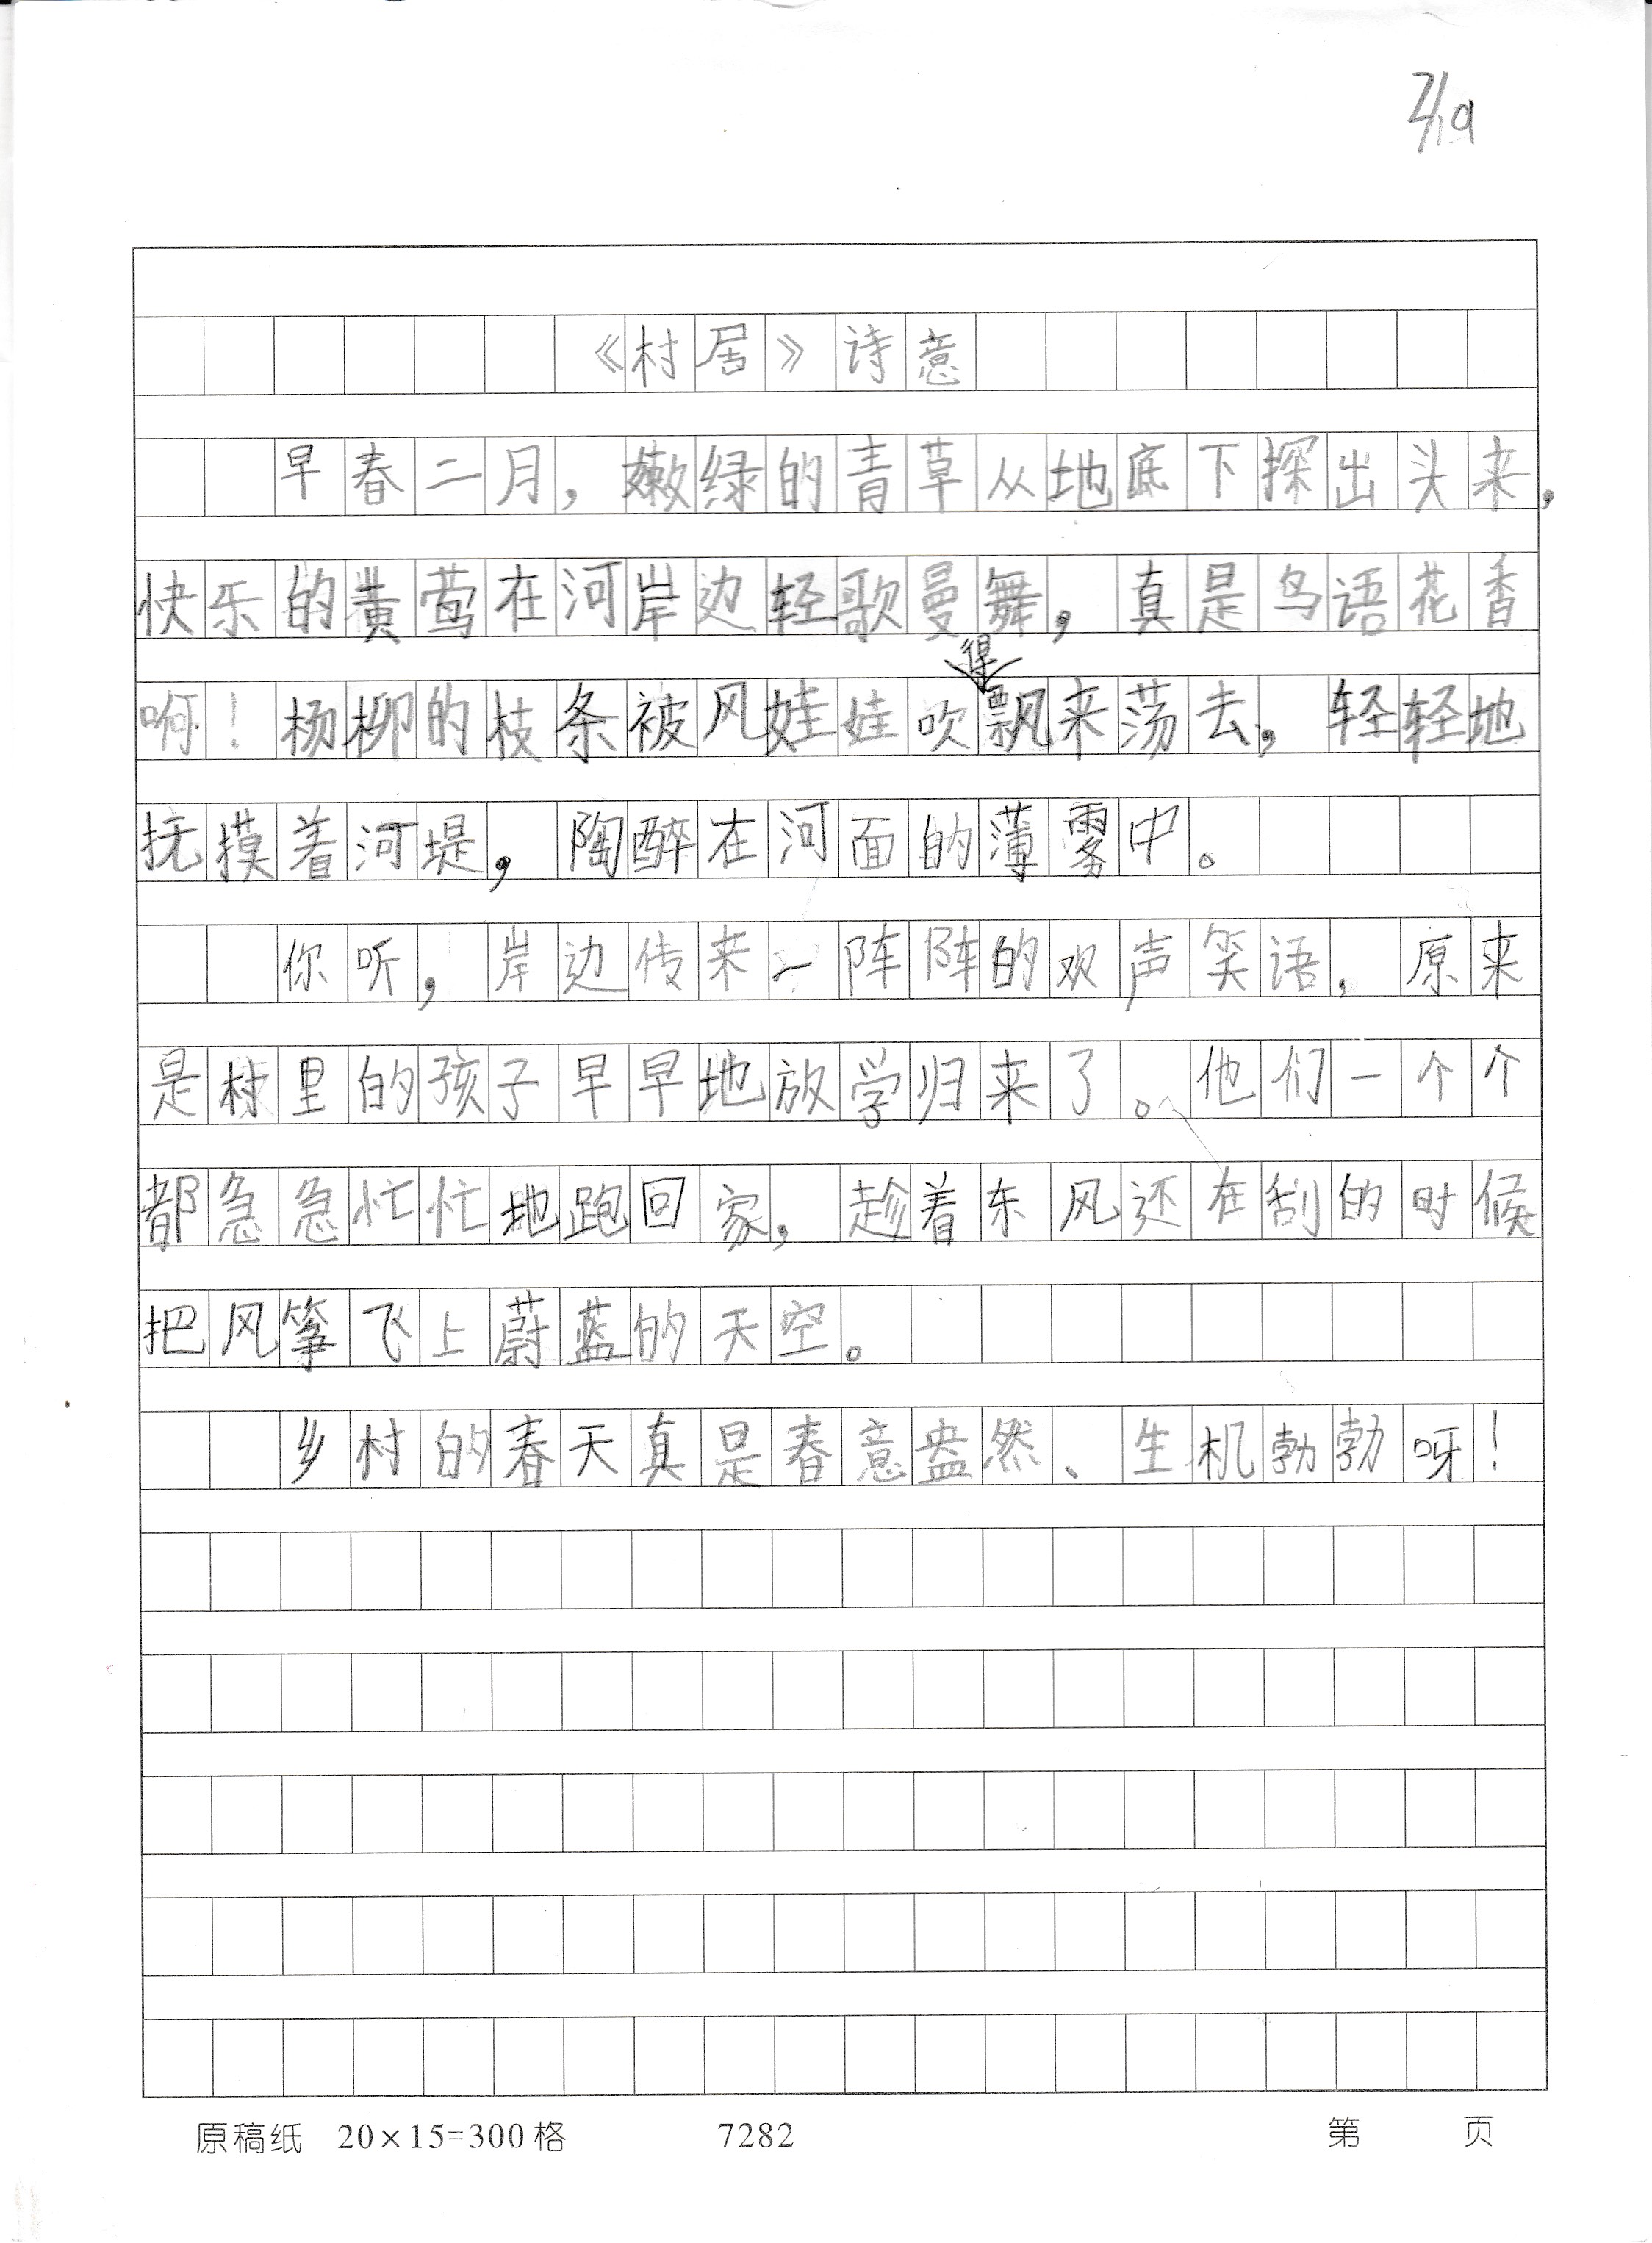 2/19
《村居》诗意
早春二月，嫩绿的青草从地底下探出头来，
快乐的黄莺在河岸边轻歌曼舞，真是鸟语花香
啊！杨柳的枝条被风娃娃吹得飘来荡去，轻轻地
抚摸着河堤，陶醉在河面的薄雾中。
你听，岸边传来一阵阵的欢声笑语，原来
是村里的孩子早早地放学归来了。他们一个个
都急急忙忙地跑回家，趁着东风还在刮的时候
把风筝飞上蔚蓝的天空。
乡村的春天真是春意盎然、生机勃勃呀！
原稿纸 20×15=300格 7282 第 页